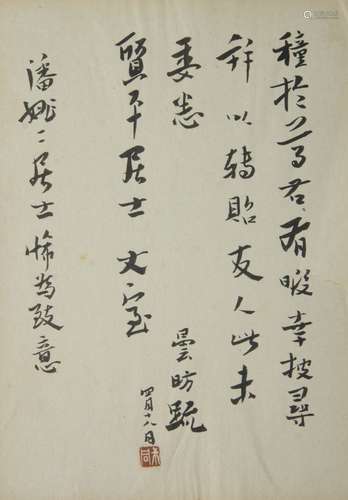 種於尊君有暇幸披尋
并以轉貽友人此未
委悉
質平居士 丈室
曇昉疏
四月十八日
潘姚二居士悕為致意